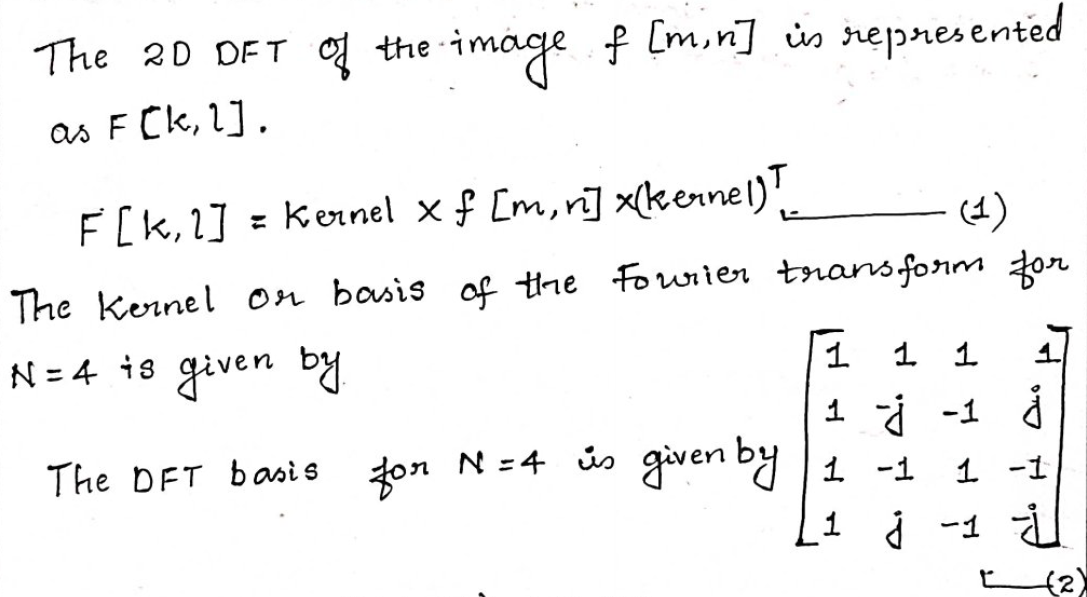 The 2D DFT of the image f [m,n] is represented
as F [k, l].
F [k, l] = Kernel × f [m, n] ×(kernel)ᵀ (1)
The Kernel or basis of the Fourier transform for
N = 4 is given by
The DFT basis for N = 4 is given by
1 1 1 1
1 -j -1 j
1 -1 1 -1
1 j -1 -j
(2)